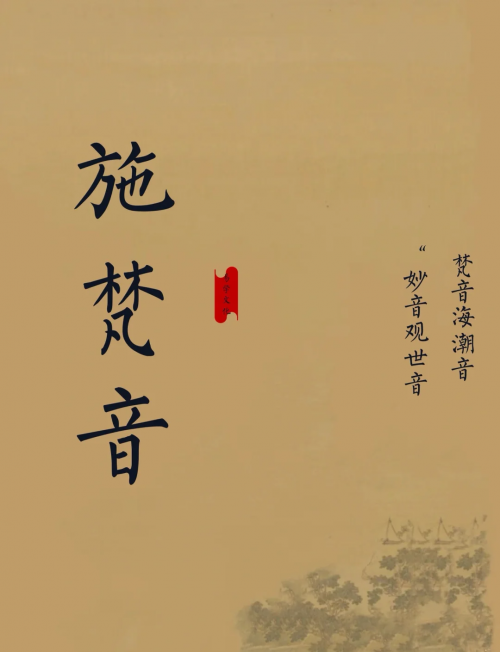 施梵音
“妙音观世音
梵音海潮音